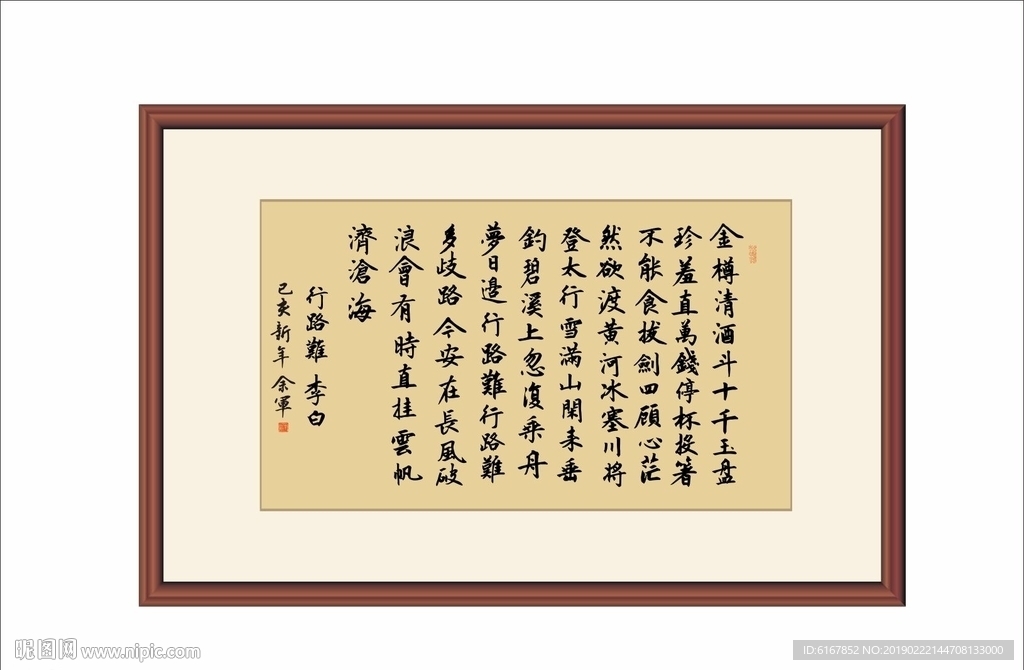 金樽清酒斗十千玉盘
珍羞直萬錢停杯投箸
不能食拔劍四顧心茫
然欲渡黄河冰塞川将
登太行雪滿山閑来垂
釣碧溪上忽復乘舟
夢日邉行路難行路難
多歧路今安在長風破
浪會有時直挂雲帆
濟滄海
行路難 李白
己亥新年 余軍
昵图网 www.nipic.com
ID:6167852 NO:20190222144708133000